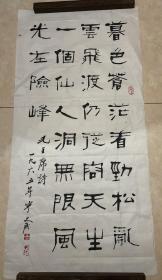 暮色蒼茫看勁松亂
雲飛渡仍從容天生
一個仙人洞無限風
光在險峰
毛主席詩
一九六五年